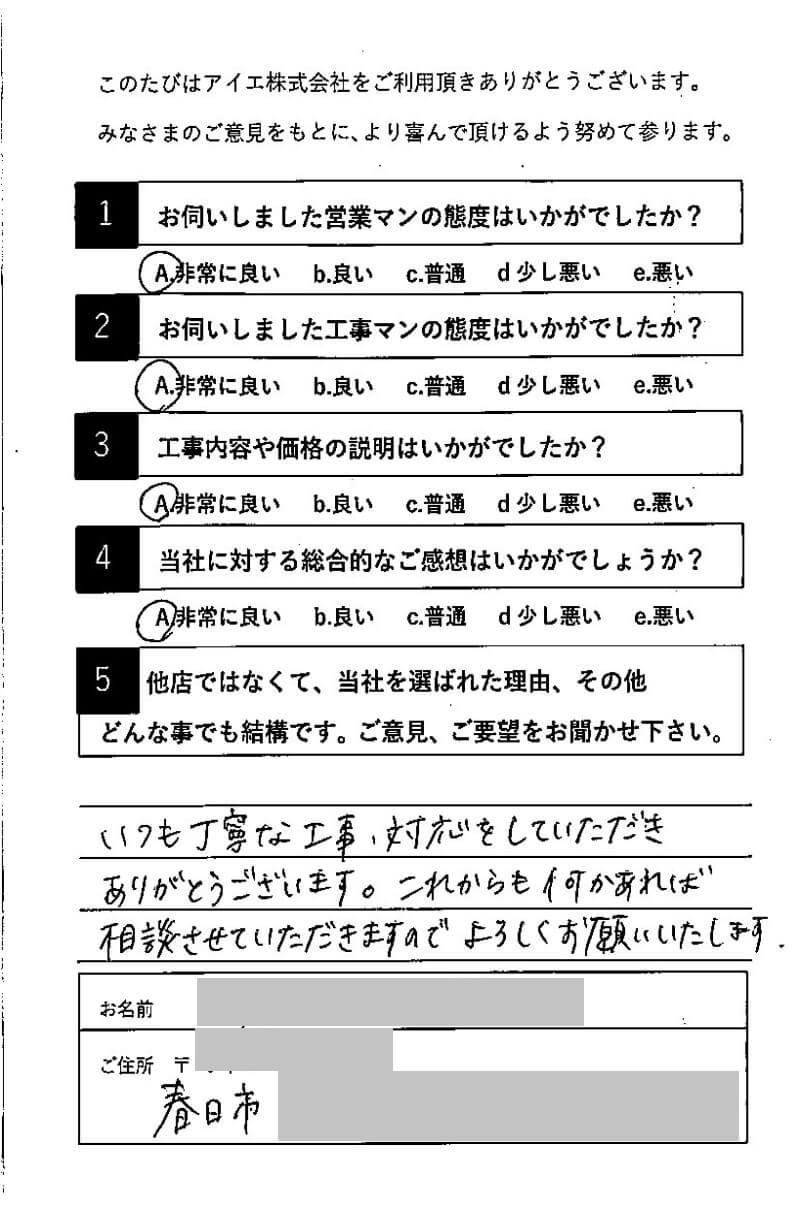 このたびはアイエ株式会社をご利用頂きありがとうございます。
みなさまのご意見をもとに、より喜んで頂けるよう努めて参ります。
1 お伺いしました営業マンの態度はいかがでしたか？
A.非常に良い b.良い c.普通 d 少し悪い e.悪い
2 お伺いしました工事マンの態度はいかがでしたか？
A.非常に良い b.良い c.普通 d 少し悪い e.悪い
3 工事内容や価格の説明はいかがでしたか？
A.非常に良い b.良い c.普通 d 少し悪い e.悪い
4 当社に対する総合的なご感想はいかがでしょうか？
A.非常に良い b.良い c.普通 d 少し悪い e.悪い
5 他店ではなくて、当社を選ばれた理由、その他
どんな事でも結構です。ご意見、ご要望をお聞かせ下さい。
いつも丁寧な工事、対応をしていただき
ありがとうございます。これからも何かあれば
相談させていただきますのでよろしくお願いいたします.
お名前
ご住所 〒
春日市